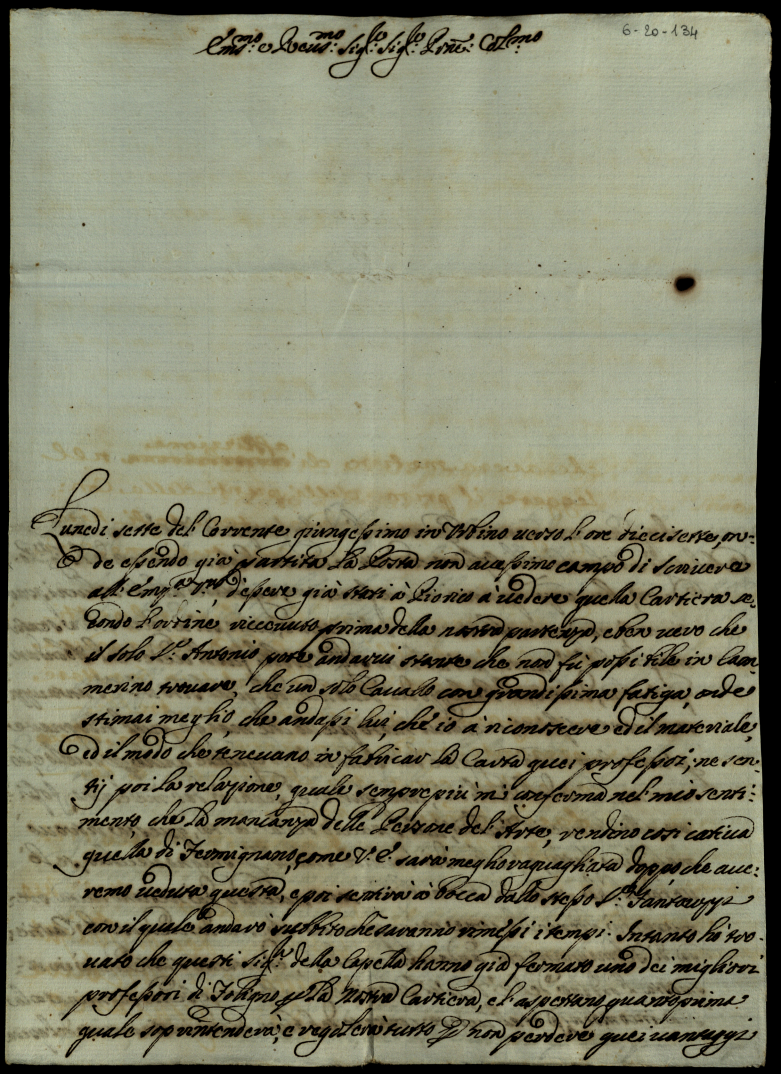 6-20-134
Em.mo e Reu.mo Sig.re Sig.re Pron.e Col.mo
Lunedi sette del Corrente giungessimo in Vrbino uerso l'ore dieciserte, on-
de essendo già partita la Posta non auessimo campo di scriuere
all'Em.za V.ra d'essere già stati à Pioraco à uedere quella Cartiera se-
condo l'ordine riceuuto prima della nostra partenza, è ben uero che
il solo S.r Antonio pote andarui stante che non fù possibile in Cam-
merino trouare, che un solo Cauallo con grandissima fatiga, onde
stimai meglio, che andassi lui, che io à riconoscere ed il materiale,
ed il modo che teneuano in fabricar la Carta quei professori, ne sen-
tij poi la relazione, quale sempre più mi conferma nel mio senti-
mento, che la mancanza delle Persone del'Arte, rendino così catiua
quella di Fermignano, come V.E. sarà meglio raguagliata doppo che aue-
remo ueduta questa, e poi sentirà à bocca dallo stesso S.r Fantauzzi
con il quale andarò subbito che saranno rimessi i tempi. Intanto hò tro-
uato che questi Sig.ri della Capella hanno già fermato uno dei migliori
professori di Foligno p la nostra Cartiera, e l'aspettano quantoprima
quale soprintenderà, e regolerà tutto p non perdere quei uantaggi